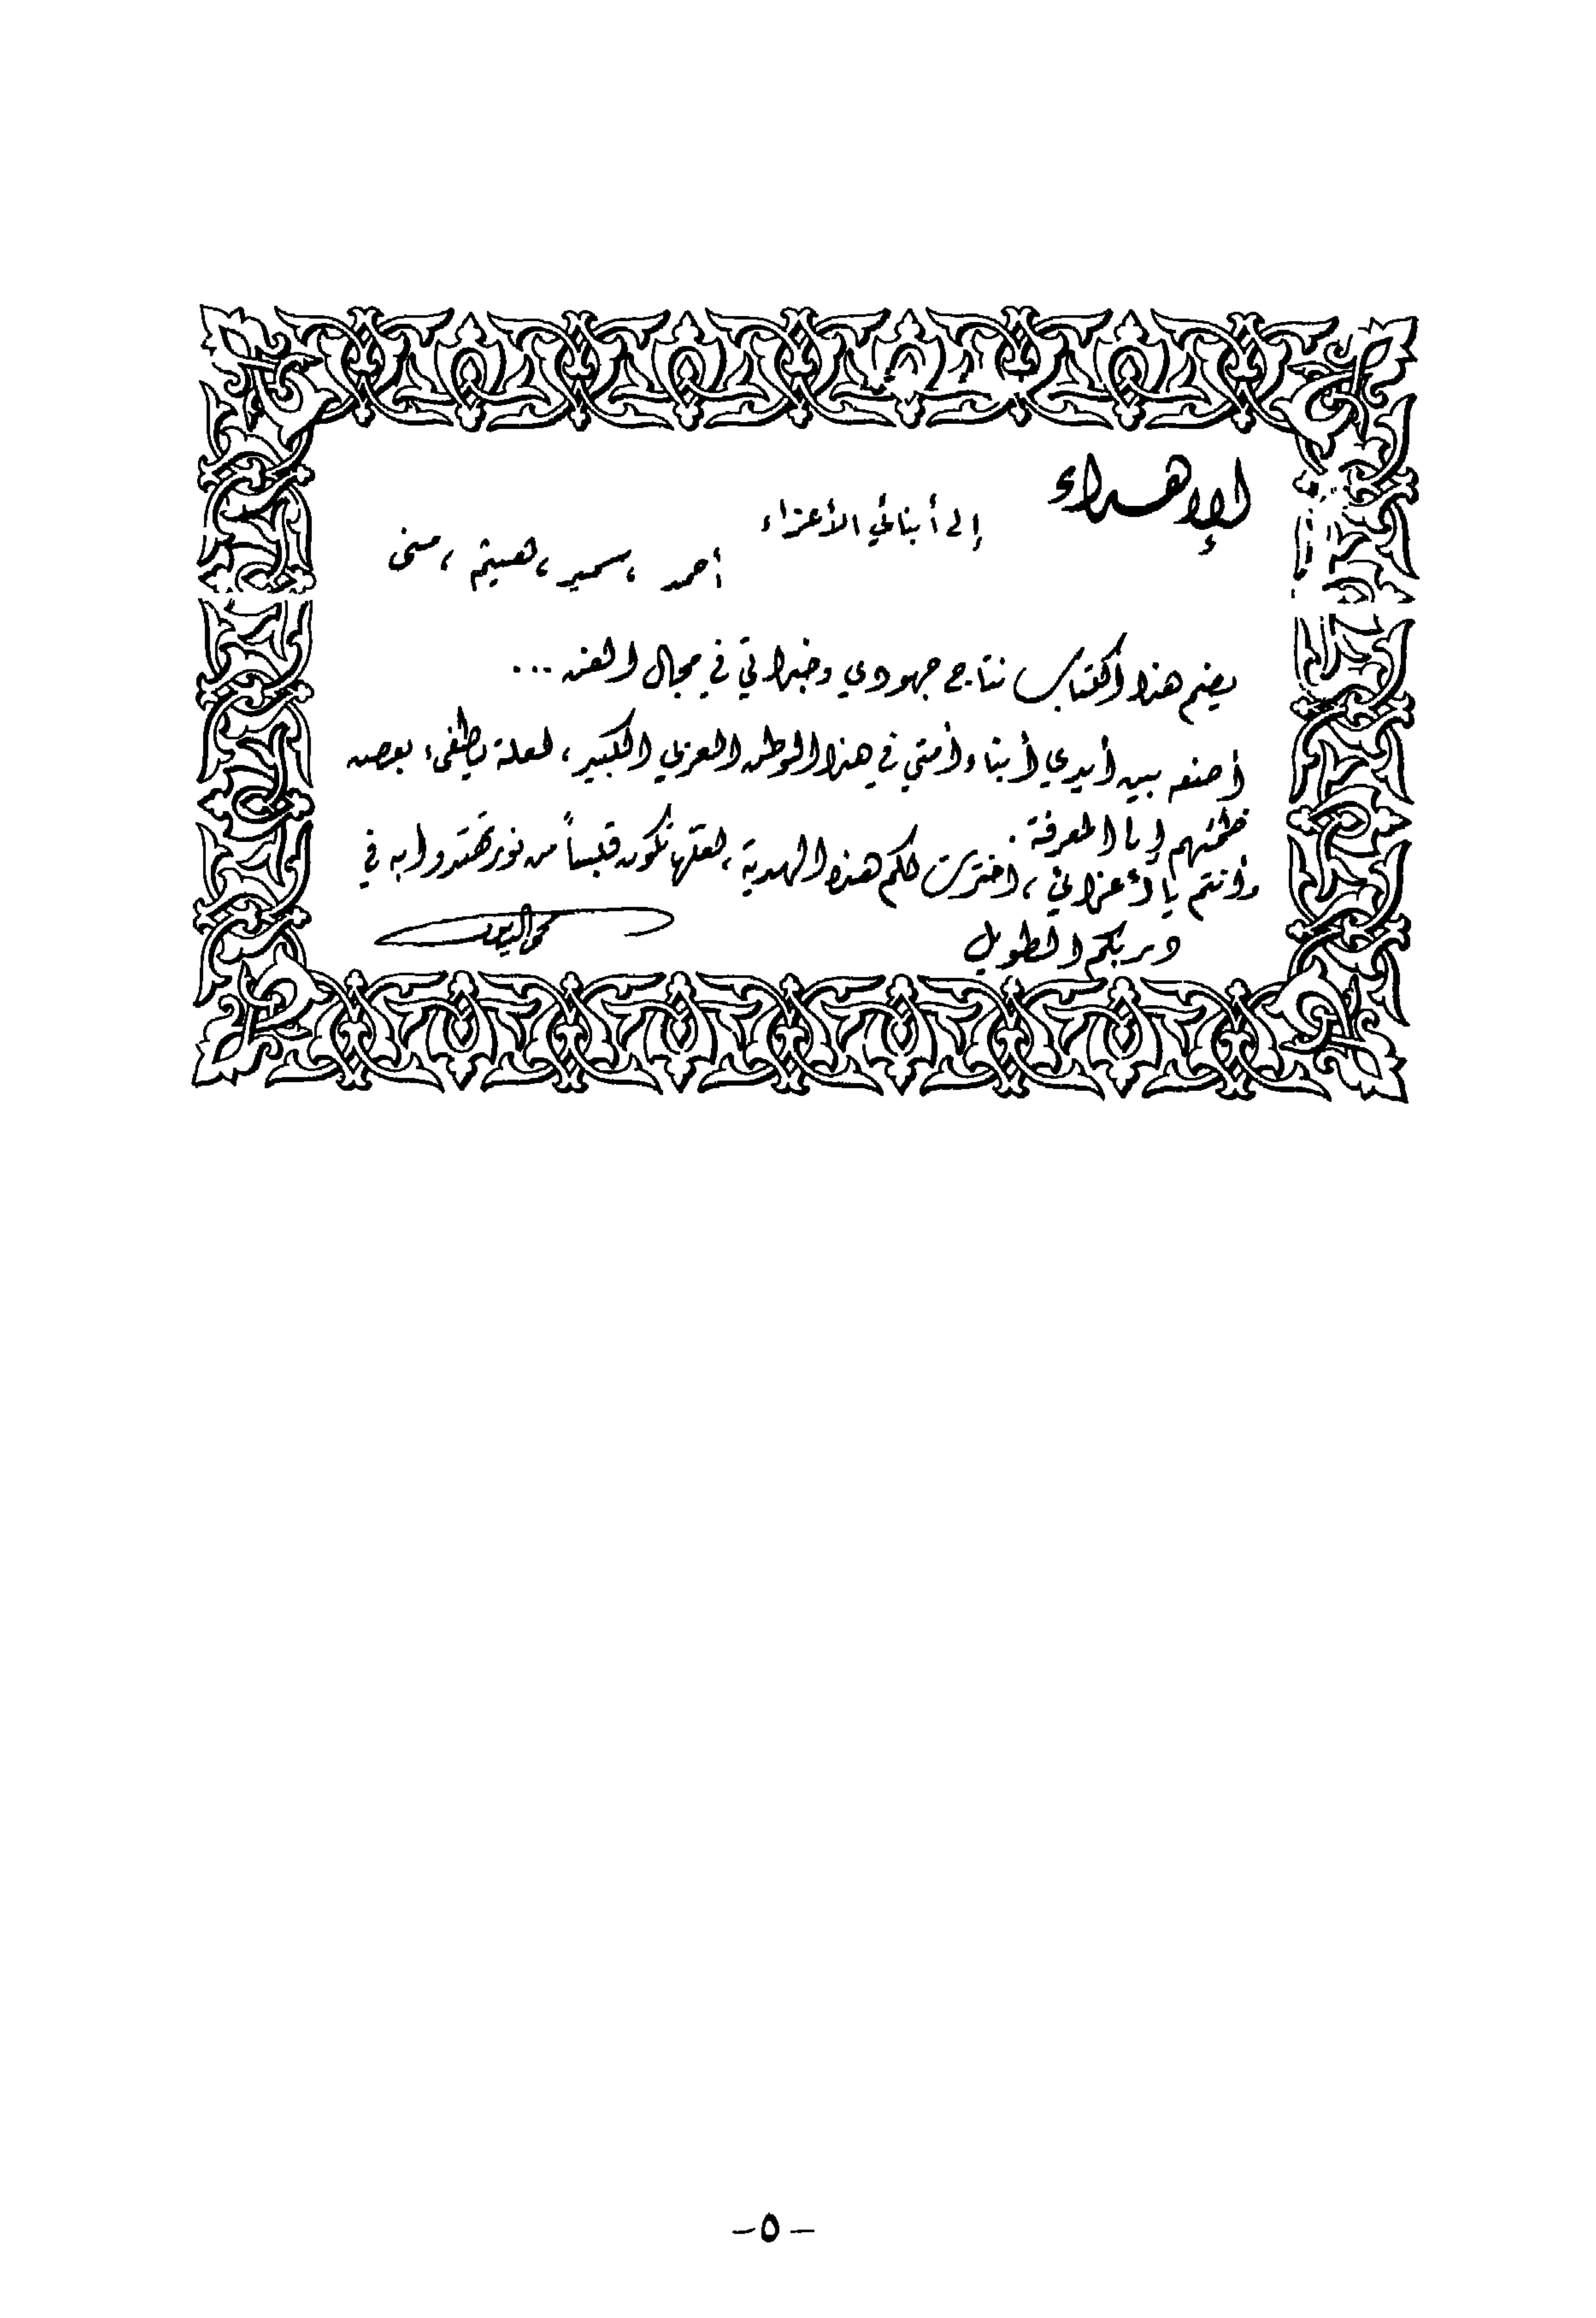 الإهداء
إلى أبنائي الأعزاء
أحمد ، سمير ، هيثم ، منى
يضم هذا الكتاب نتاج جهودي وخبراتي في مجال الفن ...
أضعه بين أيدي أبناء أمتي في هذا الوطن العربي الكبير ، لعله يطفىء بعض
ظمئهم إلى المعرفة .
وأنتم يا أعزائي ، اخترت لكم هذه الهدية ، لعلها تكون قبساً من نور تهتدوا به في
دربكم الطويل
-٥-